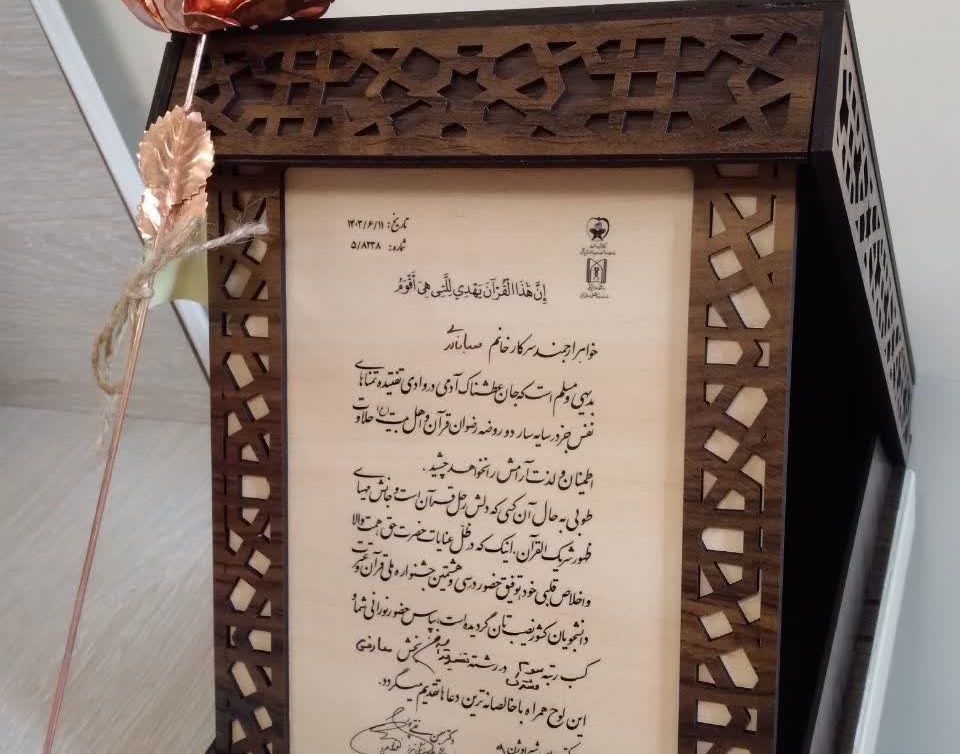 تاریخ: ۱۴۰۳/۶/۱۱
شماره: ۵/۸۲۳۸
إِنَّ هَٰذَا الْقُرْآنَ يَهْدِي لِلَّتِي هِيَ أَقْوَمُ
خواهر ارجمند سرکار خانم
بدیهی و مسلم است که جان عطشناک آدمی در وادی تفتیده تمناهای
نفس جز در سایه سار دو روضه رضوان قرآن و اهل بیت (ع) حلاوت
اطمینان و لذت آرامش را نخواهد چشید.
طوبی به حال آن کسی که دلش رحل قرآن است و جانش مهیای
ظهور شریک القرآن. اینک که در ظل عنایات حضرت حق، همت والا
و اخلاص قلبی خود، توفیق حضور در سی و هشتمین جشنواره ملی قرآن و عترت
دانشجویان کشور نصیبتان گردیده است، بپاس حضور نورانی شما و
کسب رتبه سوم در رشته بخش معارفی
مشترک
این لوح همراه با خالصانه ترین دعاها تقدیم میگردد.